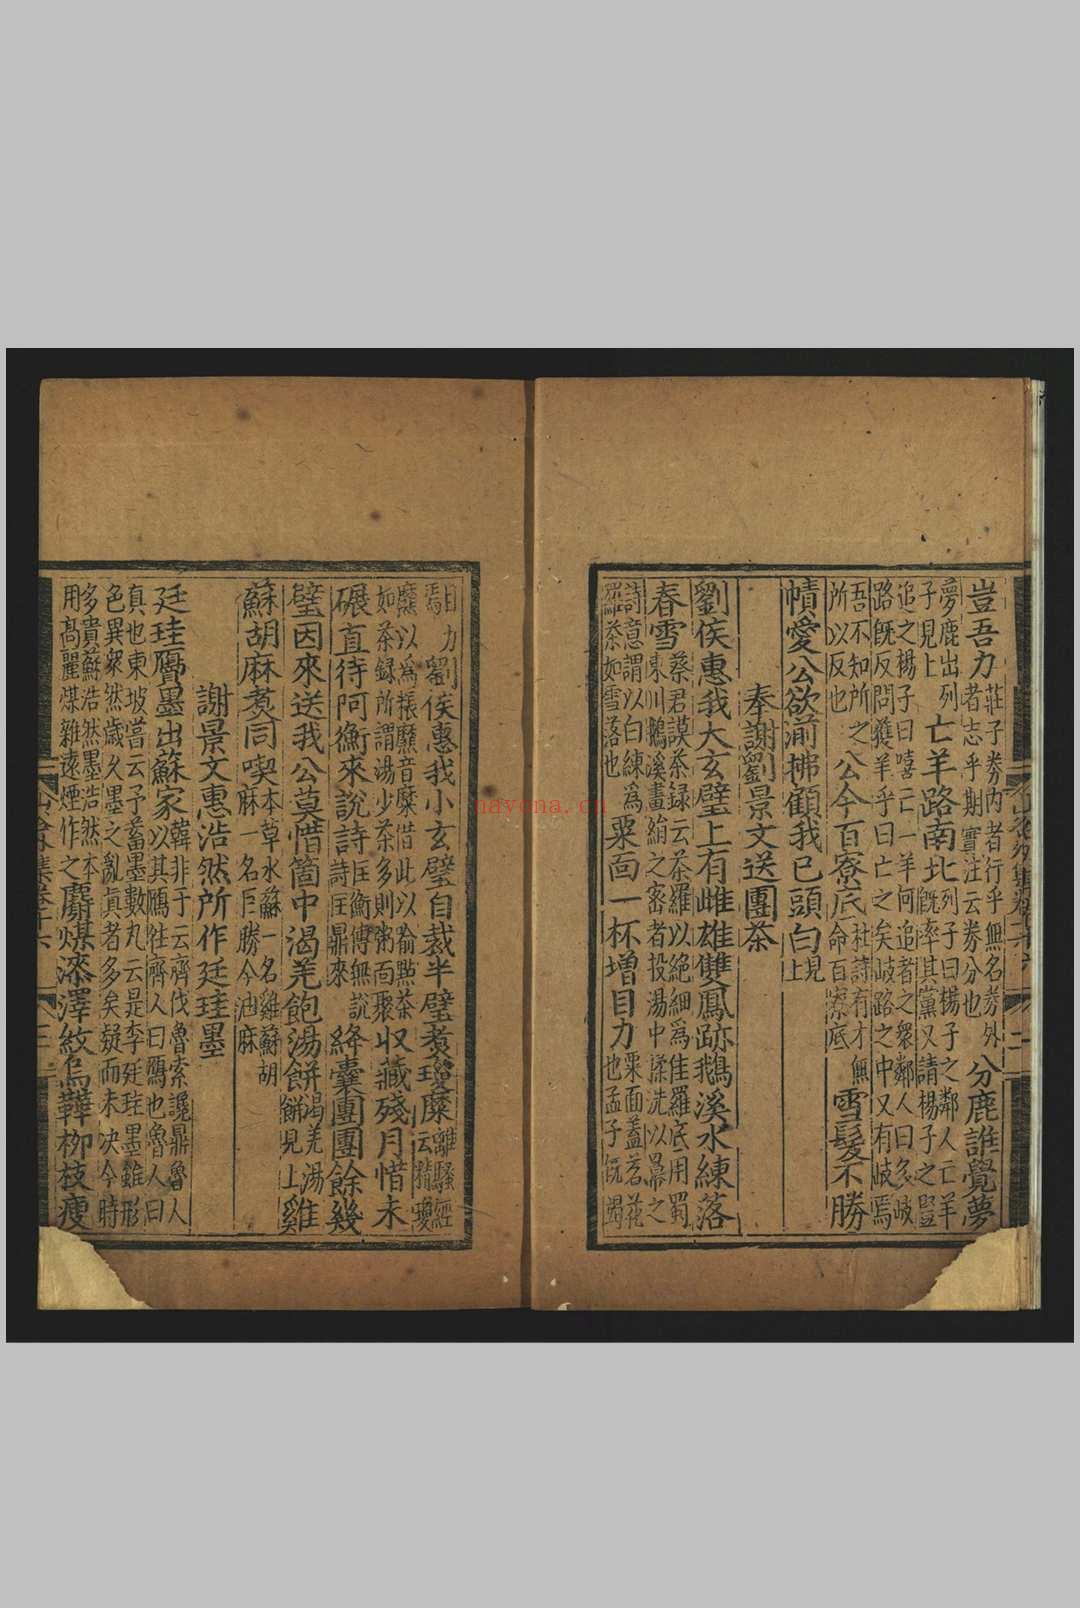 豈吾力莊子券內者行乎無名券外者志乎期實注云券分也分鹿誰覺夢
夢鹿出列子見上亡羊路南北列子曰楊子之鄰人亡羊既率其黨又請楊子之豎
追之楊子曰嘻亡一羊何追者之衆鄰人曰多岐
路既反問獲羊乎曰亡之矣岐路之中又有岐焉
吾不知所之所以反也公今百寮底杜詩有才無命百寮底雪髮不勝
幘愛公欲湔拂顧我已頭白見上
奉謝劉景文送團茶
劉侯惠我大玄璧上有雌雄雙鳳跡鵝溪水練落
春雪蔡君謨茶録云茶羅以絕細為佳羅底用蜀東川鵝溪畫絹之密者投湯中揉洗以羃之
詩意謂以白練為羅茶如雪落也粟面一杯增目力粟面蓋茗花也孟子既竭
目力焉劉侯惠我小玄璧自裁半璧煑瓊糜離騷經云精瓊
爢以為粻爢音糜借此以喻點茶如茶録所謂湯少茶多則粥面聚収藏殘月惜未
碾直待阿衡來說詩匡衡傳無說詩匡鼎來絳囊團團餘幾
璧因來送我公莫惜箇中渴羌飽湯餅渴羌湯餅見上雞
蘇胡麻煑同喫本草水蘇一名雞蘇胡麻一名巨勝今油麻
謝景文惠浩然所作廷珪墨
廷珪贗墨出蘇家韓非子云齊伐魯索讒鼎魯人以其鴈往齊人曰鴈也魯人曰
真也東坡嘗云予蓄墨數丸云是李廷珪墨雖形
色異衆然歲久墨之亂真者多矣疑而未决今時
多貴蘇浩然墨浩然本用高麗煤雜遠煙作之麝煤漆澤紋烏鞾柳枝瘦
nayona.cn